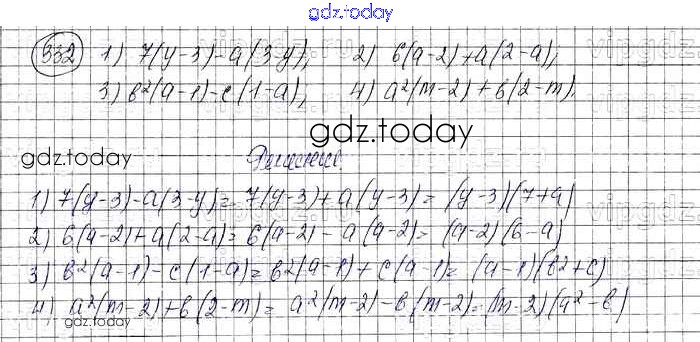 gdz.today
332 1) 7(y-3)-a(3-y); 2) 6(a-2)+a(2-a);
3) b²(a-1)-c(1-a); 4) a²(m-2)+b(2-m).
gdz.today
gdz.today Решение
1) 7(y-3)-a(3-y)=7(y-3)+a(y-3)=(y-3)(7+a)
2) 6(a-2)+a(2-a)=6(a-2)-a(a-2)=(a-2)(6-a)
3) b²(a-1)-c(1-a)=b²(a-1)+c(a-1)=(a-1)(b²+c)
4) a²(m-2)+b(2-m)=a²(m-2)-b(m-2)=(m-2)(a²-b)
gdz.today